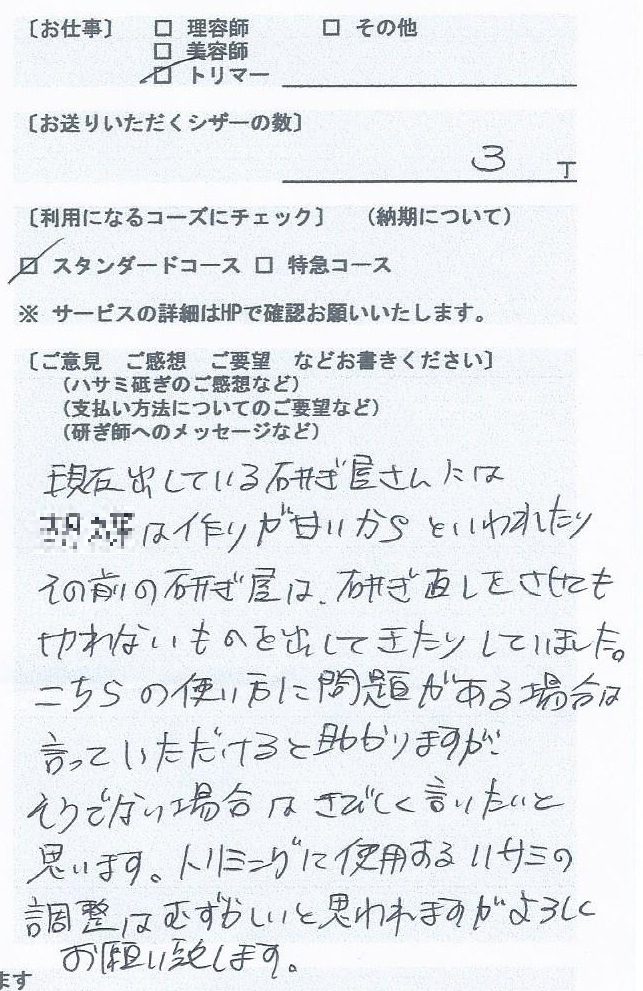 〔お仕事〕 □ 理容師 □ その他
□ 美容師
□ トリマー
〔お送りいただくシザーの数〕
3 丁
〔利用になるコーズにチェック〕 （納期について）
□ スタンダードコース □ 特急コース
※ サービスの詳細はHPで確認お願いいたします。
〔ご意見 ご感想 ご要望 などお書きください〕
（ハサミ砥ぎのご感想など）
（支払い方法についてのご要望など）
（研ぎ師へのメッセージなど）
現在出している研ぎ屋さんには
は作りが甘いから といわれたり
その前の研ぎ屋は、研ぎ直しをさせても
切れないものを出してきたりしていました。
こちらの使い方に問題がある場合は
言っていただけると助かりますが、
そうでない場合は きびしく言いたいと
思います。トリミングに使用するハサミの
調整はむずかしいと思われますがよろしく
お願い致します。
ます